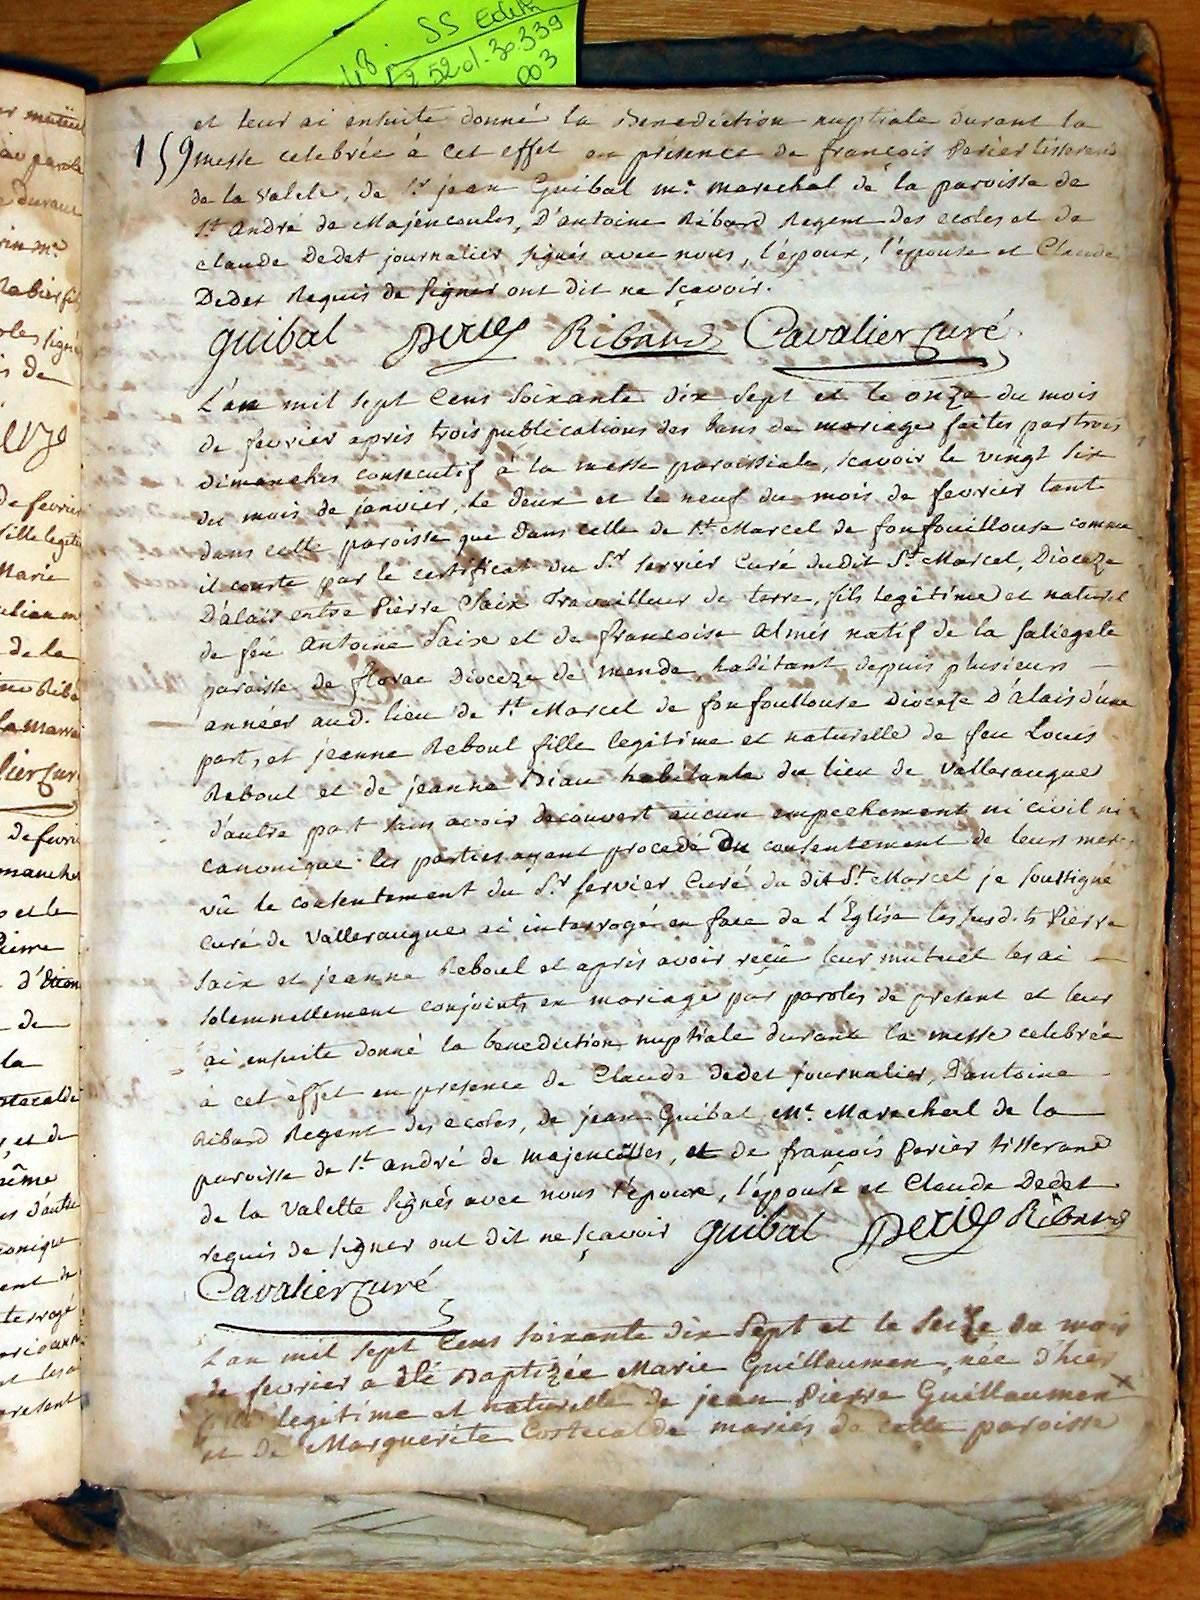 SS Edith
48.
52.01.30.339
003
159
et leur ai ensuite donné la Benediction nuptiale durant la
messe celebrée à cet effet en presence de françois Perier tisserand
de la valete, de Sr jean Guibal me marechal de la paroisse de
St André de Majencoules, D'antoine Ribard Regent des ecoles et de
claude Dedet journalier signés avec nous, l'epoux, l'epouse et Claude
Dedet Requis de signer ont dit ne sçavoir.
guibal perier Ribard Cavalier curé
L'an mil sept Cens Soixante dix sept et le onze du mois
de fevrier après trois publications des bans de mariage faites par trois
dimanches consecutif à la messe paroissiale, sçavoir le vingt six
du mois de janvier, le deux et le neuf du mois de fevrier tant
dans cette paroisse que dans celle de St Marcel de fonfouillouse comme
il conste par le certificat du Sr servier Curé dudit St Marcel, Dioceze
D'alais entre Pierre Saix Travailleur de terre, fils legitime et naturel
de feu Antoine Saix et de francoise almés natif de la saliegele
paroisse de florac Dioceze de mende, habitant depuis plusieurs
années aud. lieu de St Marcel de fonfoullouse dioceze D'alais d'une
part, et jeanne Reboul fille legitime et naturelle de feu Louis
Reboul et de jeanne Diau habitante du lieu de Valleraugue
d'autre part sans avoir decouvert aucun empechement ni civil ni
canonique les parties ayant procedé Du consentement de leurs meres
vû le consentement du Sr servier Curé du dit St Marcel je soussigné
curé de Valleraugue ai interrogé en face de L'Eglise les susd.ts Pierre
Saix et jeanne Reboul et après avoir reçû leur mutuel les ai
solemnellement conjoints en mariage par paroles de present et leur
ai ensuite donné la benediction nuptiale durant la messe celebrée
à cet effet en presence de Claude dedet journalier, D'antoine
Ribard Regent des ecoles, de jean Guibal Me Marechal de la
paroisse de St andré de majencoulles, et de françois Perier tisserand
de la Valette signés avec nous l'epoux, l'epouse et Claude Dedet
requis de signer ont dit ne sçavoir guibal perier Ribard
Cavalier curé
L'an mil sept Cens soixante dix sept et le seize du mois
de fevrier a été Baptizée Marie Guillaumen, née d'hier
legitime et naturelle de jean Pierre Guillaumen
et de Marguerite Costecalde mariés de cette paroisse